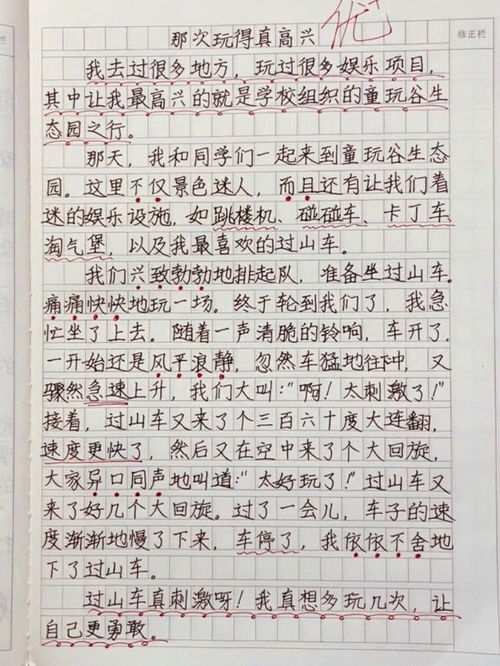 那次玩得真高兴
优+
修正栏
我去过很多地方，玩过很多娱乐项目，
其中让我最高兴的就是学校组织的童玩谷生
态园之行。
那天，我和同学们一起来到童玩谷生态
园。这里不仅景色迷人，而且还有让我们着
迷的娱乐设施，如跳楼机、碰碰车、卡丁车、
淘气堡，以及我最喜欢的过山车。
我们兴致勃勃地排起队，准备坐过山车。
痛痛快快地玩一场。终于轮到我们了，我急
忙坐了上去。随着一声清脆的铃响，车开了，
一开始还是风平浪静，忽然车猛地往下冲，又
骤然急速上升，我们大叫：“啊！太刺激了！”
接着，过山车又来了个三百六十度大连翻，
速度更快了，然后又在空中来了个大回旋，
大家异口同声地叫道：“太好玩了！”过山车又
来了好几个大回旋。过了一会儿，车子的速
度渐渐地慢了下来，车停了，我依依不舍地
下了过山车。
过山车真刺激呀！我真想多玩几次，让
自己更勇敢。